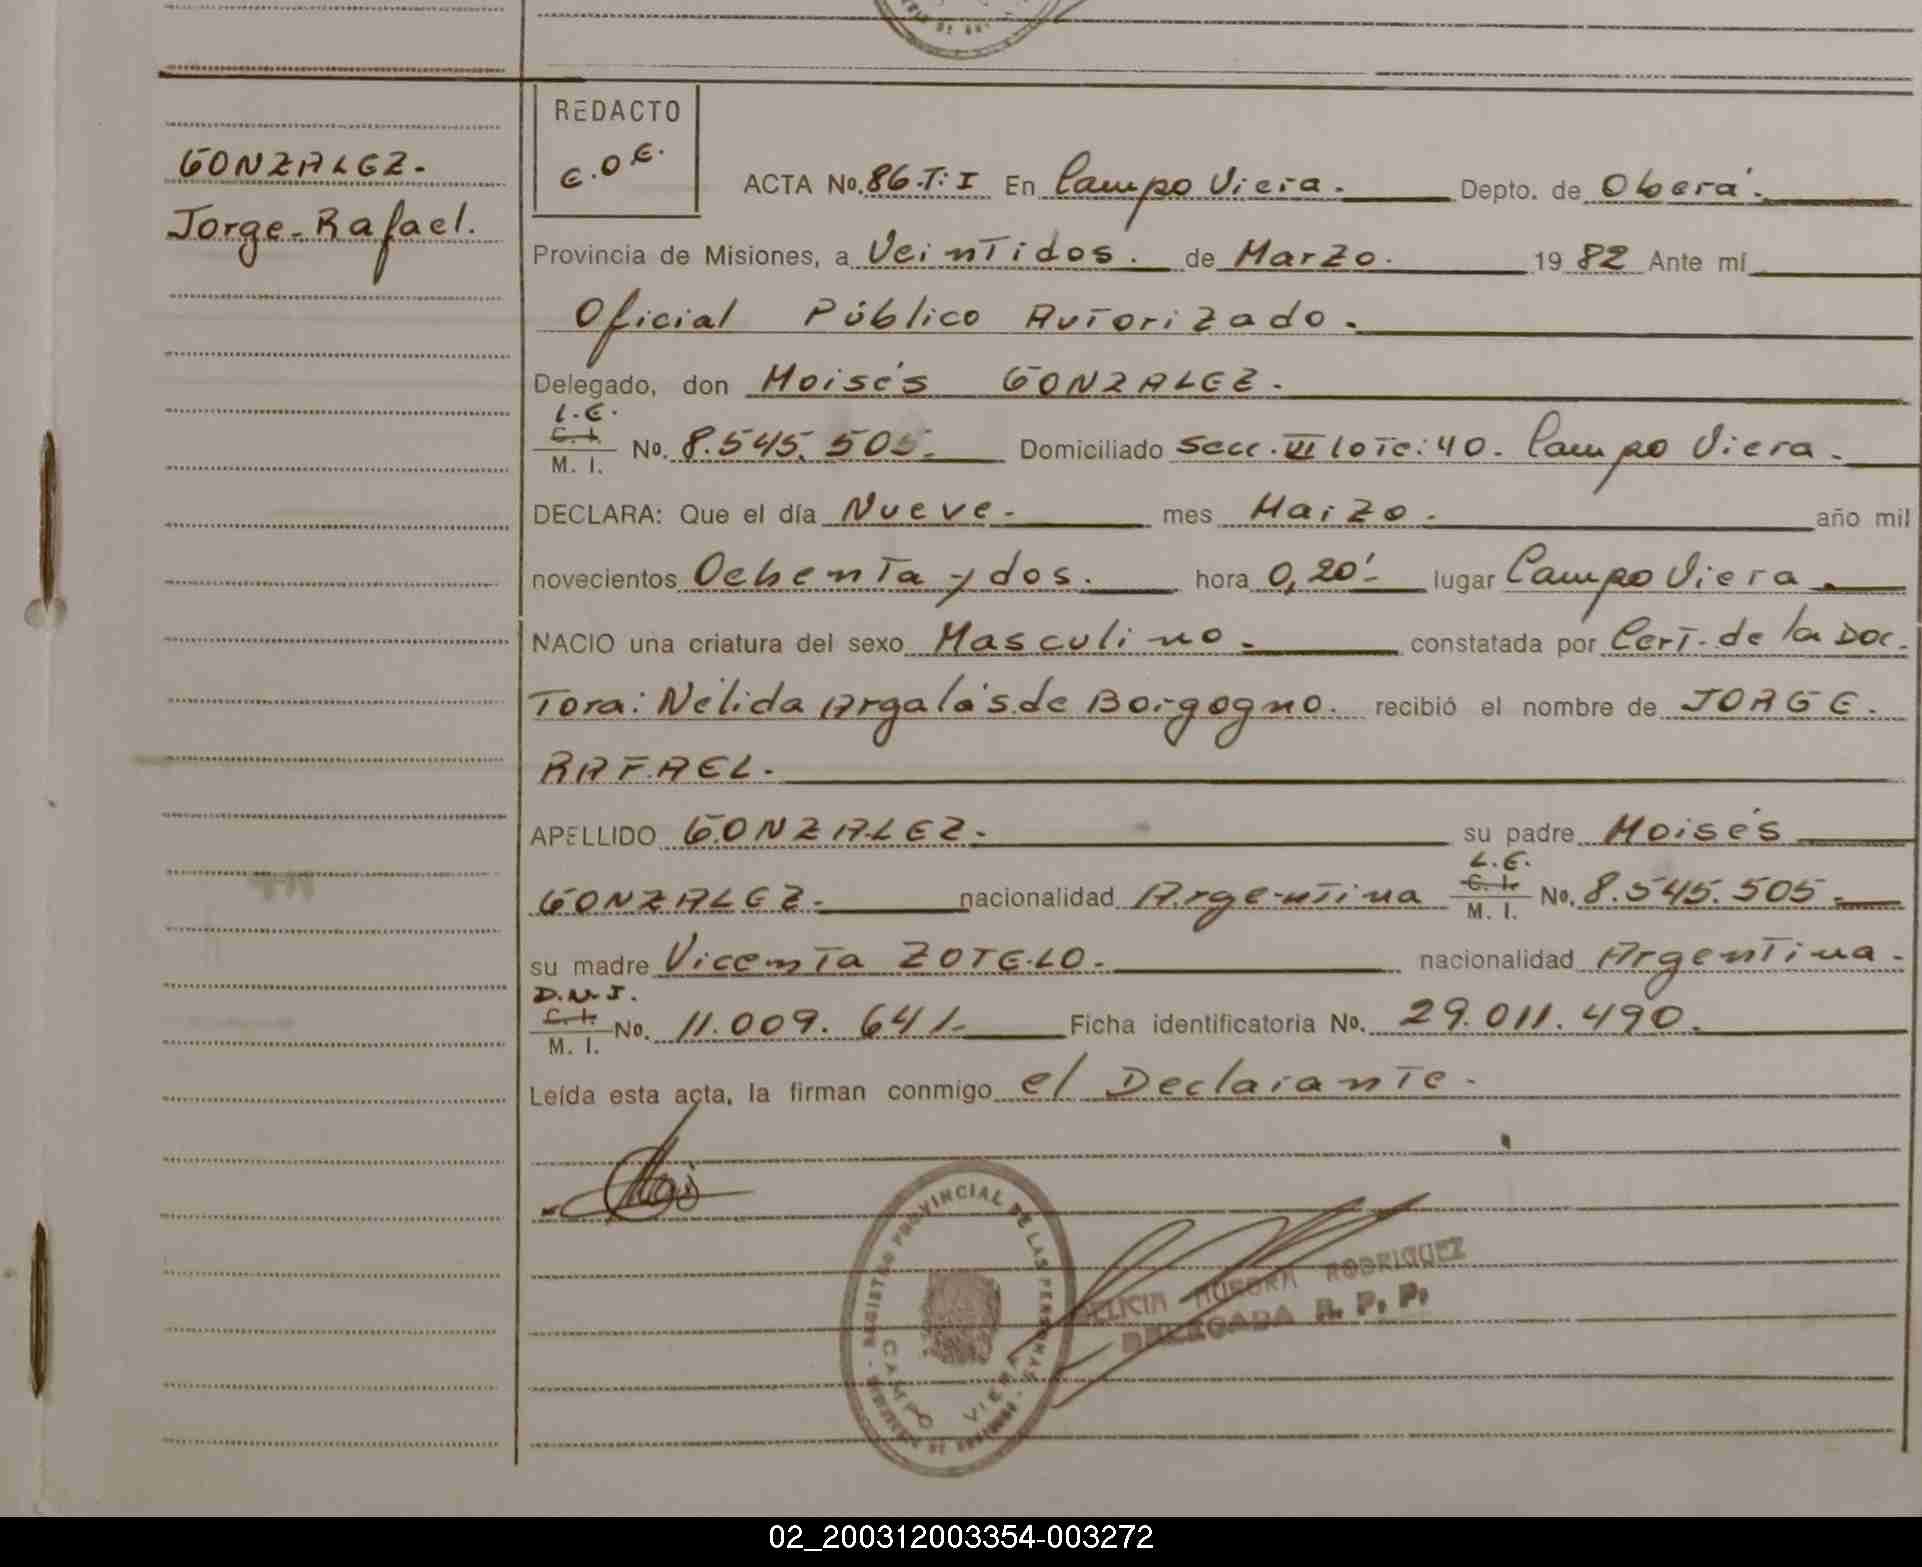 GONZALEZ.
Jorge-Rafael.
REDACTO
E.O.E.
ACTA No. 86.T:I En Campo Viera. Depto. de Oberá.
Provincia de Misiones, a Veintidos. de Marzo. 1982 Ante mí
Oficial Público Autorizado.
Delegado, don Moisés GONZALEZ.
L.E.
C. I.
M. I. No. 8.545.505. Domiciliado Secc. VI lote: 40. Campo Viera.
DECLARA: Que el día Nueve. mes Marzo. año mil
novecientos Ochenta y dos. hora 0,20' lugar Campo Viera.
NACIO una criatura del sexo Masculino. constatada por Cert. de la Doc-
Tora: Nélida Argalás de Borgogno. recibió el nombre de JORGE.
RAFAEL.
APELLIDO GONZALEZ. su padre Moisés
GONZALEZ. nacionalidad Argentina L.E. C. I. M. I. No. 8.545.505.
su madre Vicenta ZOTELO. nacionalidad Argentina.
D.N.I.
C. I.
M. I. No. 11.009.641. Ficha identificatoria No. 29.011.490.
Leída esta acta, la firman conmigo el Declarante.
REGISTRO PROVINCIAL DE LAS PERSONAS
CAMPO VIERA
AURORA RODRIGUEZ
DELEGADA R. P. P.
02_200312003354-003272